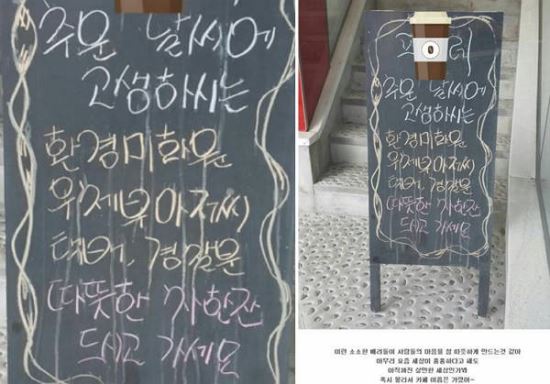 추운 날씨에
고생하시는
환경미화원
우체부아저씨
택배, 경찰분
따뜻한 차한잔
드시고 가세요
추운 날씨에
고생하시는
환경미화원
우체부아저씨
택배, 경찰분
따뜻한 차한잔
드시고 가세요
이런 소소한 배려들이 사람들의 마음을 참 따뜻하게 만드는것 같아
아무리 요즘 세상이 흉흉하다고 해도
아직까진 살만한 세상인가봐
혹시 몰라서 카페 이름은 가렸어~